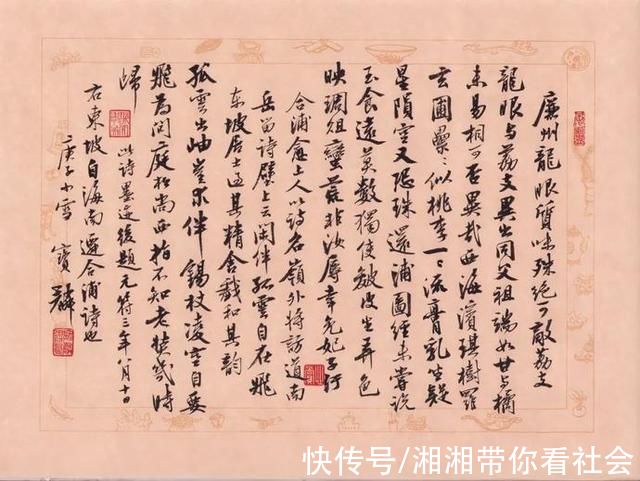 廉州龍眼質味殊絕可敵荔支
龍眼与荔支異出同父祖端如甘与橘
未易相可否異哉西海濱琪樹羅
玄圃纍〻似桃李一一流膏乳坐疑
星隕空又恐珠還浦圖經未嘗說
玉食遠莫數獨使皺皮生弄色
映琱俎蠻荒非汝辱幸免妃子汙
合浦愈上人以詩名嶺外將訪道南
岳留詩壁上云閑伴孤雲自在飛
东坡居士过其精舍戲和其韻
孤雲出岫豈求伴錫杖凌空自要
飛為問庭松尚西指不知老奘幾時
歸 此詩墨迹後題元符三年八月十日
右東坡自海南遷合浦詩也
庚子小雪 寶麟
快传号/湘湘带你看社会